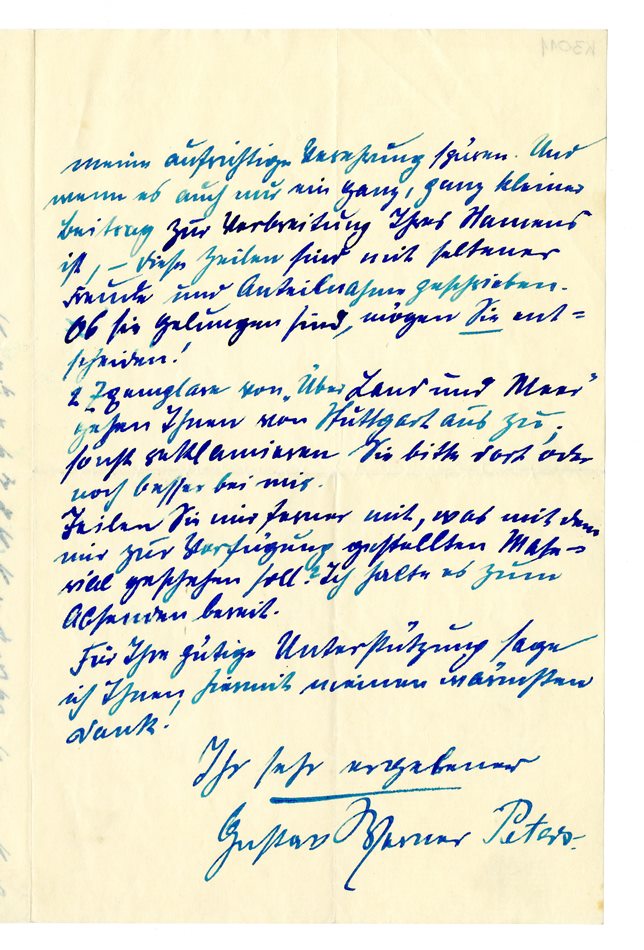 K3011
meine aufrichtige Verehrung spüren. Und
wenn es auch nur ein ganz, ganz kleiner
Beitrag zur Verbreitung Ihres Namens
ist, – diese Zeilen sind mit seltener
Freude und Anteilnahme geschrieben.
Ob sie gelungen sind, mögen Sie ent=
scheiden!
2 Exemplare von „Über Land und Meer"
gehen Ihnen von Stuttgart aus zu,
sonst reklamieren Sie bitte dort oder
noch besser bei mir.
Teilen Sie mir ferner mit, was mit dem
mir zur Verfügung gestellten Mate=
rial geschehen soll? Ich halte es zum
Absenden bereit.
Für Ihre gütige Unterstützung sage
ich Ihnen hiermit meinen wärmsten
Dank!
Ihr sehr ergebener
Gustav Werner Peters.